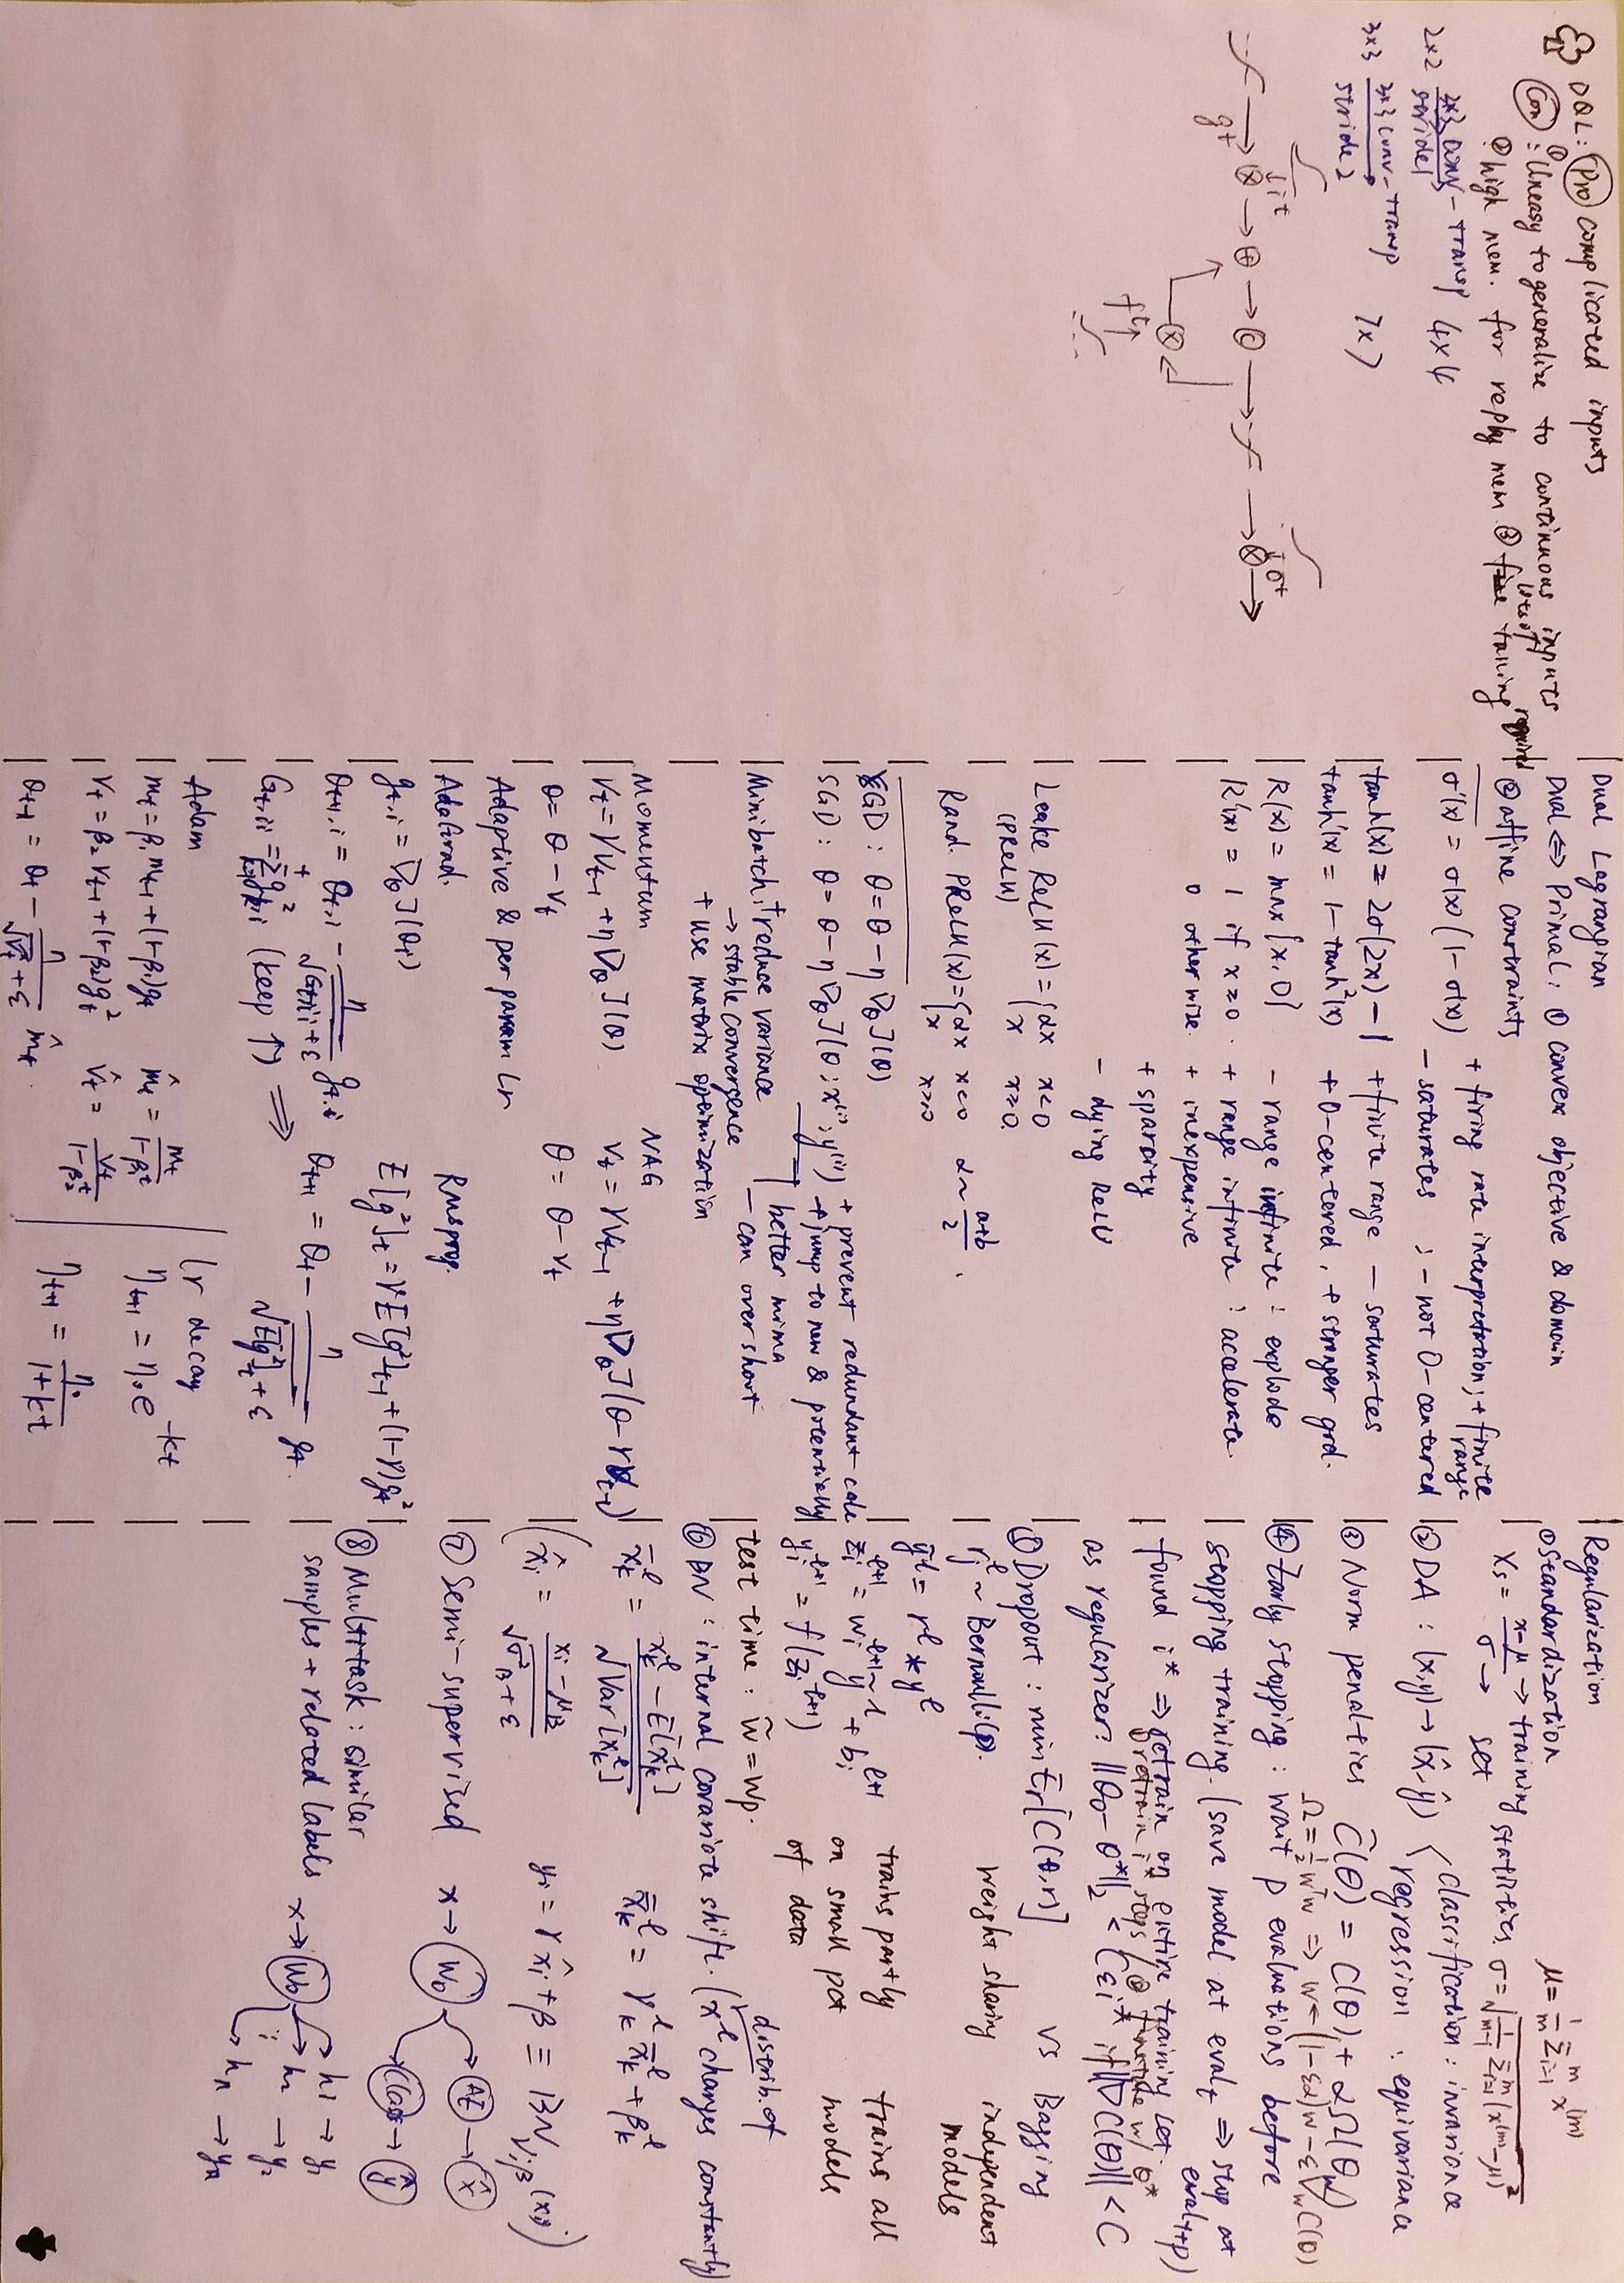 DQL: Pro complicated inputs
Con: ① Uneasy to generalize to continuous inputs
② high mem. for reply mem ③ lots of training required
2×2 conv-transp 4×4
stride 1
3×3 3×3 conv-transp 7×7
stride 2
gt
it
ft
ot
Dual Lagrangian
Dual ⇔ Primal: ① convex objective & domain
② affine constraints
σ'(x) = σ(x)(1-σ(x)) + firing rate interpretation; + finite range
- saturates ; - not 0-centered
tanh(x) = 2σ(2x) - 1 + finite range - saturates
tanh'(x) = 1 - tanh²(x) + 0-centered, + stronger grd.
R(x) = max{x, 0} - range infinite: explode
R'(x) = 1 if x≥0 . + range infinite: accelerate
0 otherwise. + inexpensive
+ sparsity
- dying ReLU
Leake ReLU(x) = {αx x<0
(PReLU) x x≥0.
Rand. PReLU(x) = {αx x<0 α~ a+b/2 .
x x≥0
GD: θ = θ - η∇θJ(θ)
SGD: θ = θ - η∇θJ(θ; x⁽ⁱ⁾, y⁽ⁱ⁾) + prevent redundant calc
+ jump to new & potentially better minima
- can overshoot
Minibatch: + reduce variance
→ stable convergence
+ use matrix optimization
Momentum NAG
vt = γvt-1 + η∇θJ(θ) vt = γvt-1 + η∇θJ(θ - γvt-1)
θ = θ - vt θ = θ - vt
Adaptive & per param lr
AdaGrad. RMSprop.
gt,i = ∇θJ(θt) E[g²]t = γE[g²]t-1 + (1-γ)gt²
θt+1,i = θt,i - η/√(Gt,ii+ε) gt,i θt+1 = θt - η/√(E[g²]t+ε) gt.
Gt,ii = Σ g²k,i (keep ↑) ⟹
Adam lr decay
mt = β₁mt-1 + (1-β₁)gt m̂t = mt/(1-β₁ᵗ) ηt+1 = η₀e⁻ᵏᵗ
vt = β₂vt-1 + (1-β₂)gt² v̂t = vt/(1-β₂ᵗ) ηt+1 = η₀/(1+kt)
θt+1 = θt - η/(√v̂t+ε) m̂t.
Regularization
① Standardization μ = 1/m Σᵢ₌₁ᵐ x⁽ᵐ⁾
xs = (x-μ)/σ → training set statistics, σ = √(1/(m-1) Σᵢ₌₁ᵐ (x⁽ᵐ⁾-μ)²)
② DA: (x,y) → (x̂,ŷ) < classification: invariance
regression: equivariance
③ Norm penalties C̃(θ) = C(θ) + αΩ(θw)
Ω = ½wᵀw ⇒ w ← (1-εα)w - ε∇wC(θ)
④ Early stopping: wait p evaluations before
stopping training. (save model at evalt ⇒ stop at evalt+p)
found i* ⇒ retrain on entire training set.
① retrain i* steps / ② w/ θ*
as regularizer: ||θ₀ - θ*||₂ < Cεi* if ||∇C(θ)|| < C
⑤ Dropout: min Er[C(θ,r)] vs Bagging
rjˡ ~ Bernoulli(p). weight sharing independent models
ỹˡ = rˡ * yˡ
zᵢˡ⁺¹ = wᵢˡ⁺¹ỹˡ + bᵢˡ⁺¹ trains partly on small part of data trains all models
yᵢˡ⁺¹ = f(zᵢˡ⁺¹)
test time: w̃ = wp.
⑥ BN: internal covariate shift. (distrib. of xˡ changes constantly)
x̄kˡ = (xkˡ - E[xkˡ])/√Var[xkˡ] x̿kˡ = γkˡx̄kˡ + βkˡ
(x̂i = (xi - μB)/√(σ²B+ε) yi = γx̂i + β ≡ BNγ,β(xi))
⑦ Semi-supervised x → W₀ → AE → x̂
Class → ŷ
⑧ Multitask: similar
samples + related labels x → W₀ → h₁ → y₁
h₂ → y₂
hn → yn